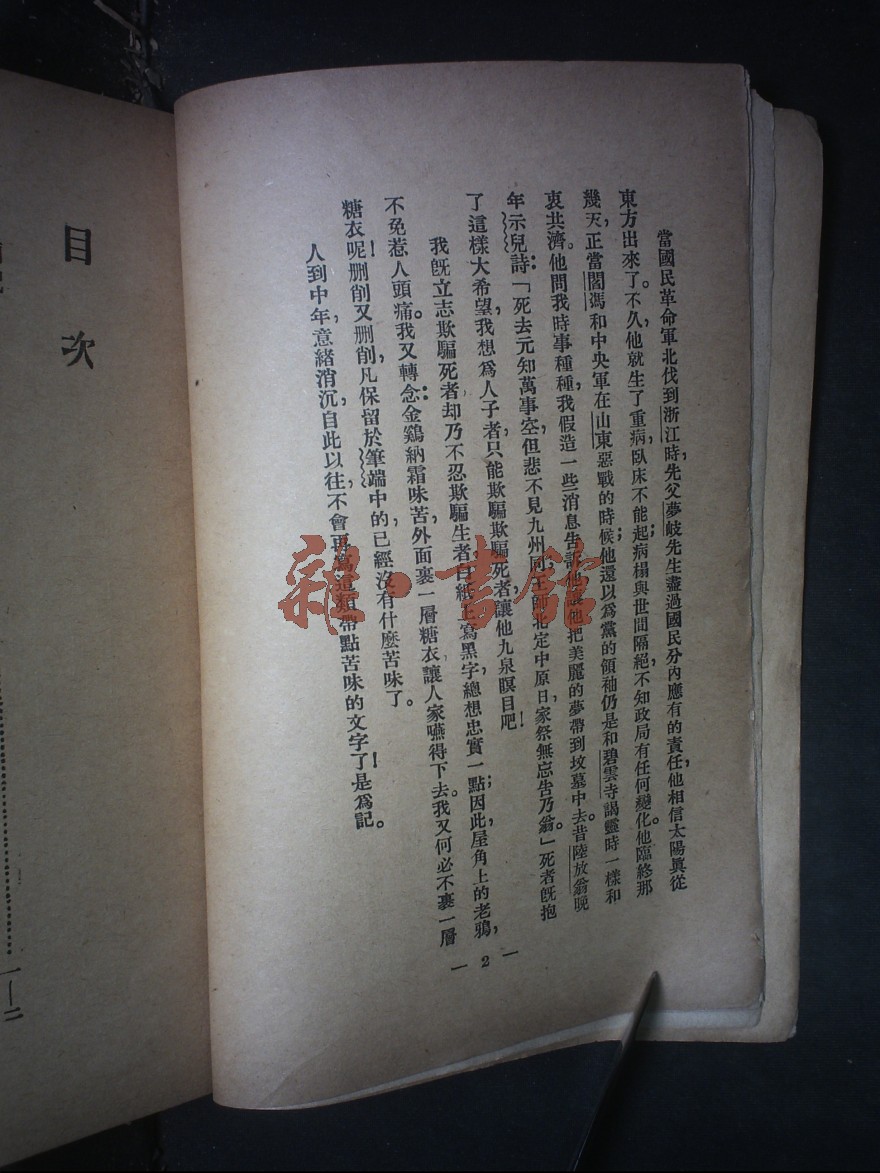 當國民革命軍北伐到浙江時，先父夢岐先生盡過國民分內應有的責任，他相信太陽眞從
東方出來了。不久，他就生了重病，臥床不能起；病榻與世間隔絕，不知政局有任何變化。他臨終那
幾天，正當閻馮和中央軍在山東惡戰的時候；他還以爲黨的領袖仍是和碧雲寺謁靈時一樣和
衷共濟。他問我時事種種，我假造一些消息告訴他，讓他把美麗的夢帶到坟墓中去。昔陸放翁晚
年示兒詩：「死去元知萬事空，但悲不見九州同，王師北定中原日，家祭無忘告乃翁。」死者旣抱
了這樣大希望，我想爲人子者只能欺騙欺騙死者，讓他九泉瞑目吧！
我旣立志欺騙死者，却乃不忍欺騙生者，白紙上寫黑字，總想忠實一點；因此屋角上的老鴉，
不免惹人頭痛。我又轉念：金鷄納霜味苦，外面裹一層糖衣，讓人家嚥得下去。我又何必不裹一層
糖衣呢！删削又删削，凡保留於筆端中的，已經沒有什麽苦味了。
人到中年，意緒消沉，自此以往，不會再寫這類帶點苦味的文字了！是爲記。
— 2 —
目次
一—二
雜·書館